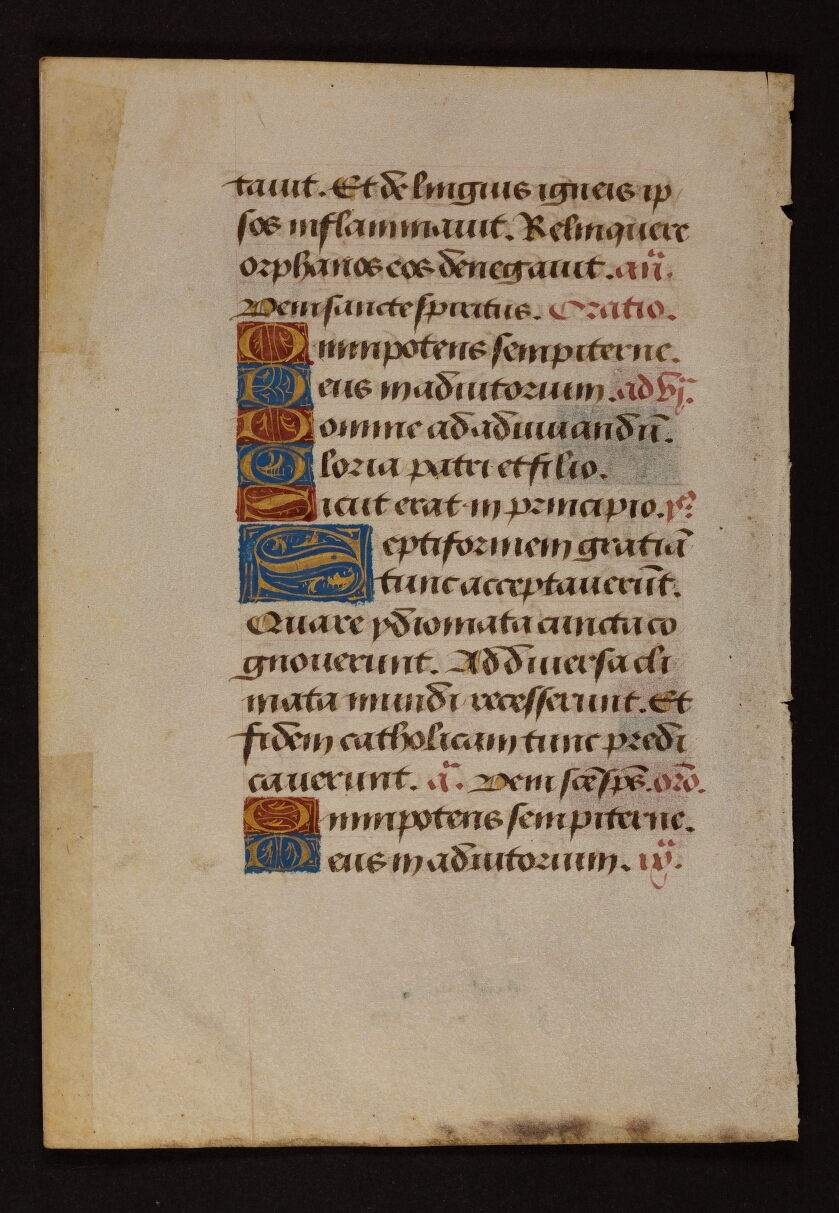 tauit. Et de linguis igneis ip
sos inflammauit. Relinquere
orphanos eos denegauit. añ.
Veni sancte spiritus. Oratio.
Omnipotens sempiterne.
Deus in adiutorium. ad vj.
Domine ad adiuuandū.
Gloria patri et filio.
Sicut erat in principio. y?
Septiformem gratiā
tunc acceptauerūt.
Quare ydiomata cuncta co
gnouerunt. Ad diuersa cli
mata mundi recesserunt. Et
fidem catholicam tunc predi
cauerunt. ā. Veni sc̄e sp̄s. orō.
Omnipotens sempiterne.
Deus in adiutorium. ix.